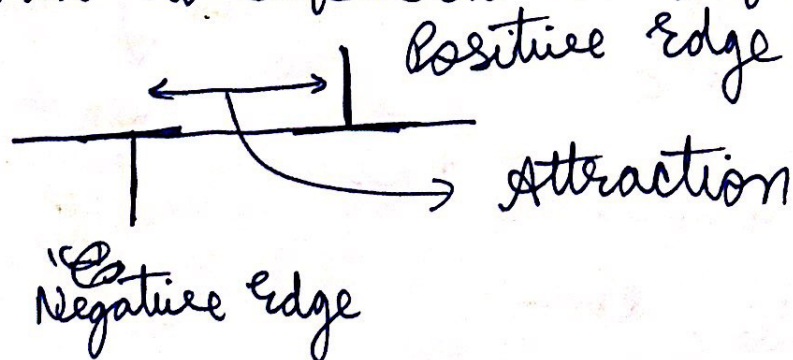 Positive Edge
Attraction
Negative Edge